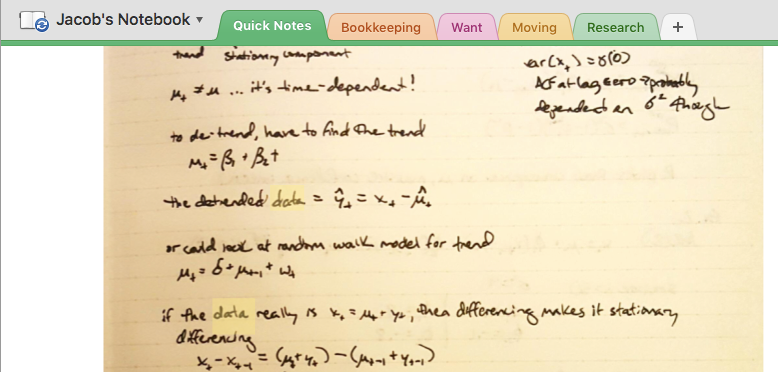 Jacob's Notebook
Quick Notes
Bookkeeping
Want
Moving
Research
+
trend stationary component
μₜ ≠ μ ... it's time-dependent!
var(xₜ) = γ(0)
ACF at lag zero → probably
dependent on σ² though
to de-trend, have to find the trend
μₜ = β₁ + β₂t
the detrended data = ŷₜ = xₜ - μ̂ₜ
or could look at random walk model for trend
μₜ = δ + μₜ₋₁ + wₜ
if the data really is xₜ = μₜ + yₜ, then differencing makes it stationary
differencing
xₜ - xₜ₋₁ = (μₜ + yₜ) - (μₜ₋₁ + yₜ₋₁)